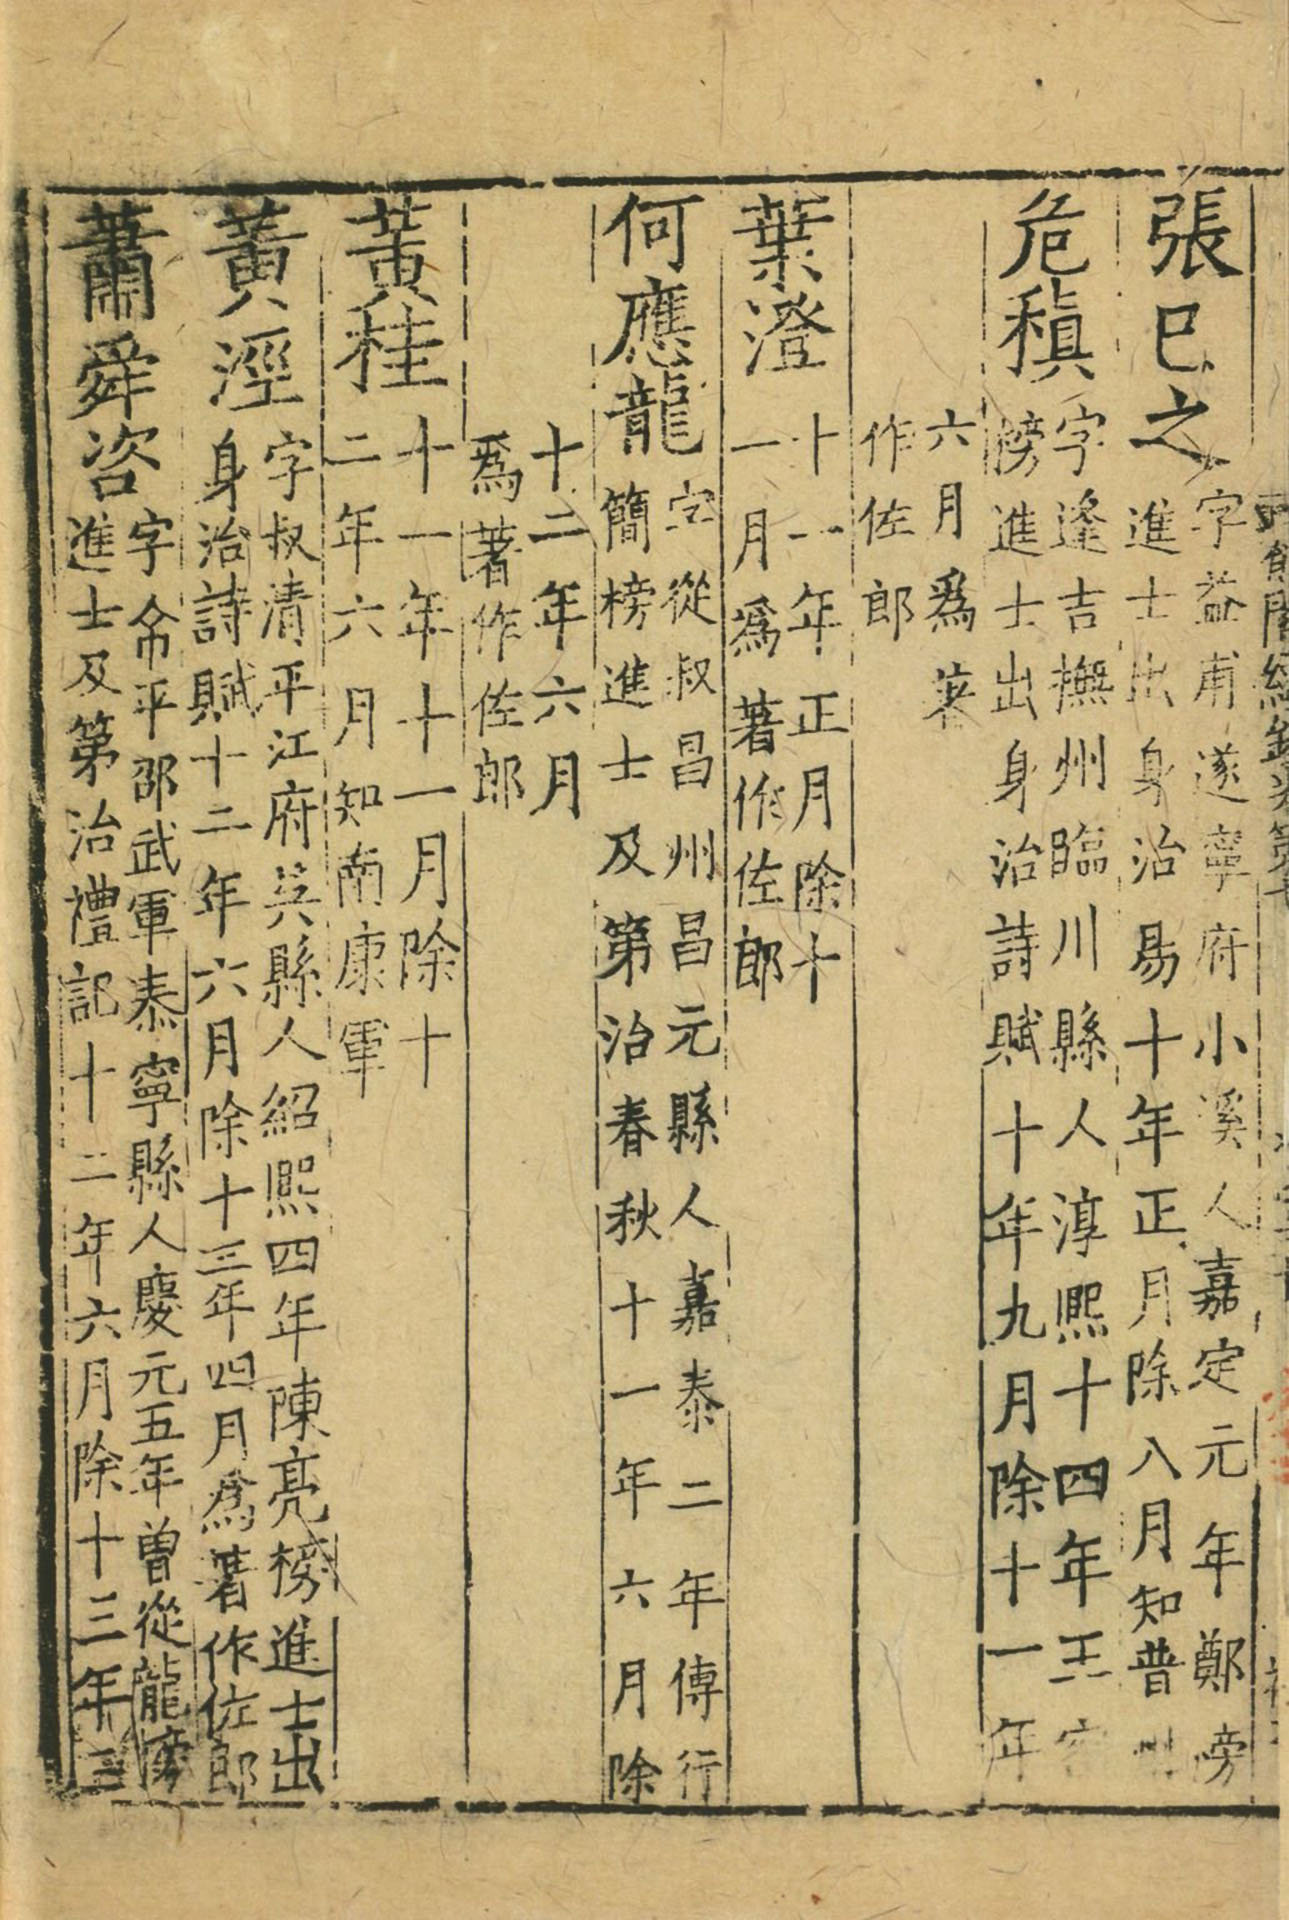 張巳之字益甫遂寧府小溪人嘉定元年鄭
進士出身治易十年正月除八月知普州
危稹字逢吉撫州臨川縣人淳熙十四年王
榜進士出身治詩賦十年九月除十一年
六月爲著
作佐郎
葉澄十一年正月除十
一月爲著作佐郎
何應龍字從叔昌州昌元縣人嘉泰二年傅行
簡榜進士及第治春秋十一年六月除
十二年六月
爲著作佐郎
黃桂十一年十一月除十
二年六月知南康軍
黃涇字叔清平江府吳縣人紹熙四年陳亮榜進士出
身治詩賦十二年六月除十三年四月爲著作佐郎
蕭舜咨字令平邵武軍泰寧縣人慶元五年曾從龍榜
進士及第治禮記十二年六月除十三年三